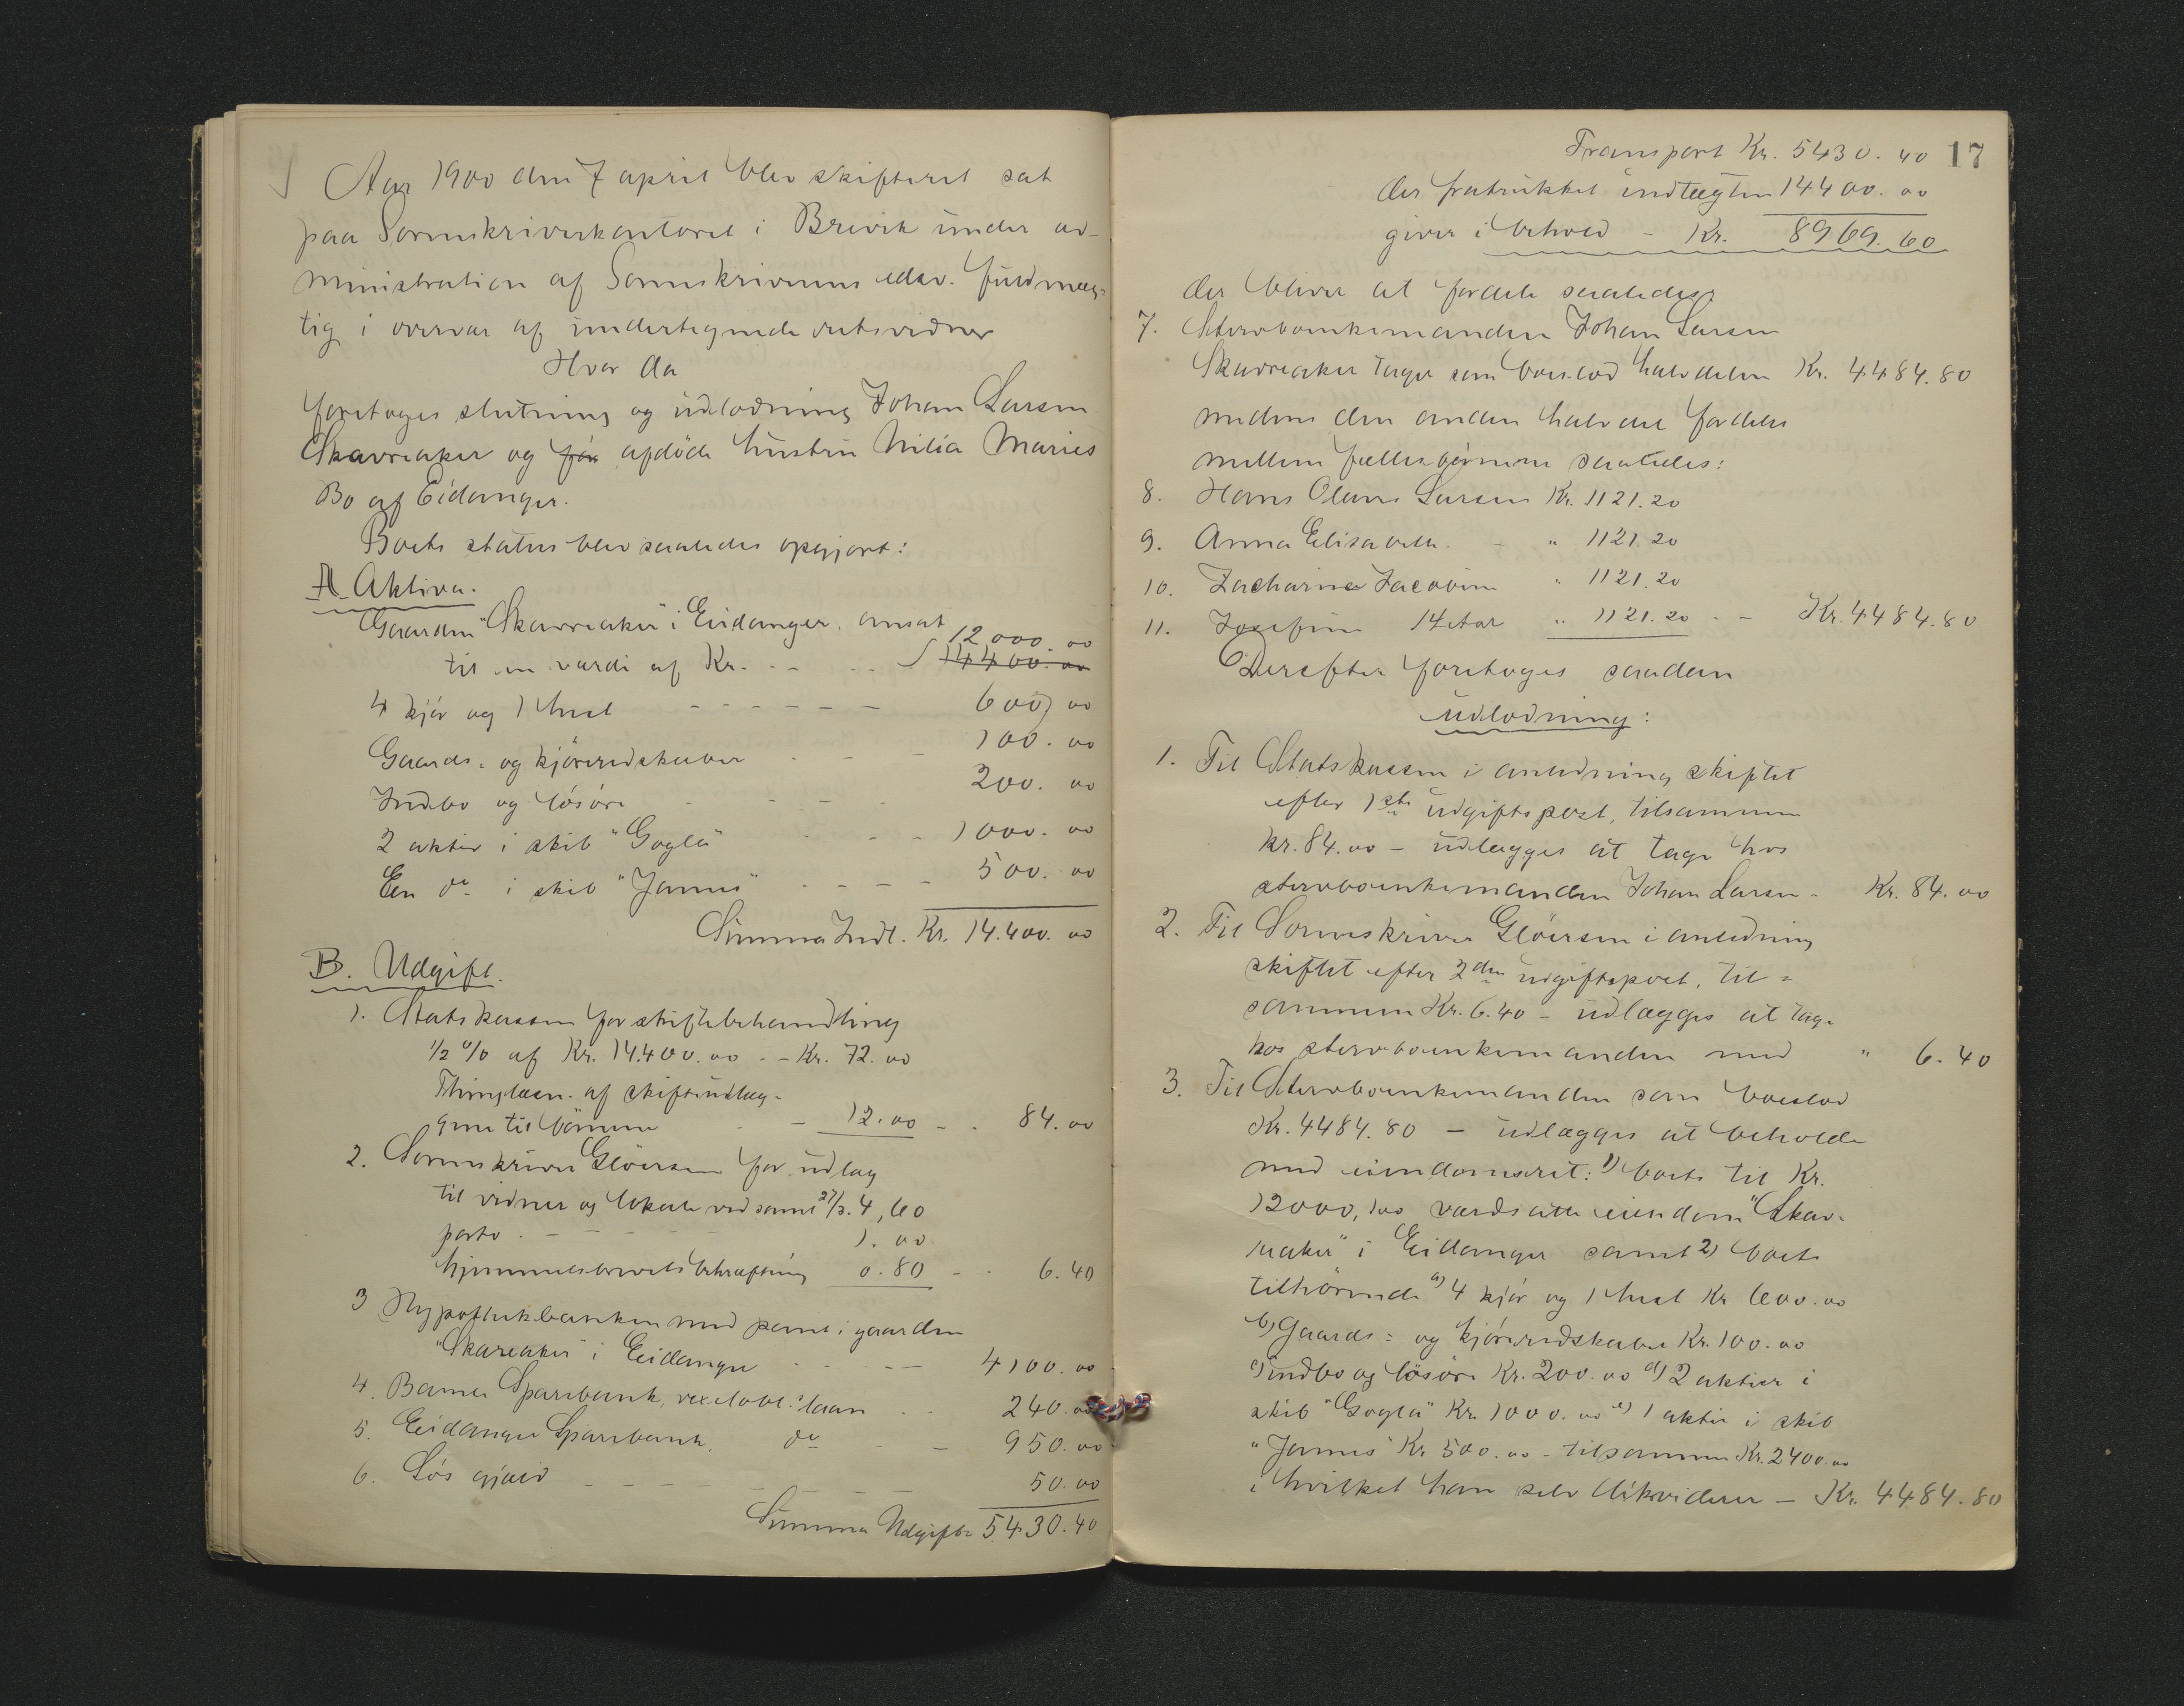 Aar 1900 den 7 april blev skifteret sat
paa Sorenskriverkontoret i Brevik under ad-
ministration af Sorenskriverens edsv. fuldmæg-
tig i overvær af undertegnede retsvidner
Hvor da
foretoges slutning og udlodning Johan Larsen
Skavreaker og før afdøde hustru Nilia Maries
Bo af Eidanger.
Boets status blev saaledes opgjort:
A Aktiva.
Gaarden "Skavreaker" i Eidanger ansat 12000.00
til en værdi af Kr. - - - 14400.00
4 kjør og 1 hest - - - - - - 600,00
Gaards- og kjøreredskaber - - 100.00
Indbo og løsøre - - - 200.00
2 aktier i skib "Gogla" - - - 1000.00
Een do i skib "Jannes" - - - - 500.00
Summa Indt. Kr. 14.400.00
B. Udgift.
1. Statskassen for skiftebehandling
1/2 % af Kr. 14.400.00 - - Kr. 72.00
Thinglæsn. af skifteudlæg-
gene til børnene - - 12.00 - - 84.00
2. Sorenskriver Gløersen for udlæg
til vidner og lokale ved saml 27/3. 4,60
porto - - - - 1.00
hjemmelsbrevets bekræftning 0.80 - - 6.40
3 Hypothekbanken med pant i gaarden
"Skareaker" i Eidanger - - - - 4100.00
4. Bamle Sparebank, vexelobl. laan - - 240.00
5. Eidanger Sparebank, do - - 950.00
6. Løs gjæld - - - - - - 50.00
Summa Udgifter 5430.40
17
Transport Kr. 5430.40
der fratrukket indtægten 14400.00
giver i behold - Kr. 8969.60
der bliver at fordele saaledes:
7. Sterboenkemanden Johan Larsen
Skavreaker tager som boeslod halvdelen Kr. 4484.80
medens den anden halvdel fordeles
mellem fællesbørnene saaledes:
8. Hans Olaus Larsen Kr. 1121.20
9. Anna Elisabeth - " 1121.20
10. Zacharine Jacobine " 1121.20
11. Josefine 14 Aar " 1121.20 - - Kr. 4484.80
Derefter foretoges saadan
udlodning:
1. Til Statskassen i anledning skiftet
efter 1ste udgiftspost, tilsammen
kr. 84.00 - udlægges at tage hos
sterboenkemanden Johan Larsen - Kr. 84.00
2. Til Sorenskriver Gløersen i anledning
skiftet efter 2den udgiftspost, til-
sammen Kr. 6.40 - udlægges at tage
hos sterboenkemanden med " 6.40
3. Til Sterboenkemanden som boeslod
Kr. 4484.80 - udlægges at beholde
med eiendomsret: 1) boets til Kr.
12000,00 værdsatte eiendom "Skav-
reaker" i Eidanger samt 2) boets
tilhørende a) 4 kjør og 1 hest Kr 600.00
b) Gaards- og kjøreredskaber Kr. 100.00
c) indbo og løsøre Kr. 200.00 d) 2 aktier i
skib "Gogla" Kr. 1000.00 e) 1 aktie i skib
"Jannes" Kr 500.00 - tilsammen Kr. 2400.00
i hvilket han selv likviderer - Kr. 4484.80